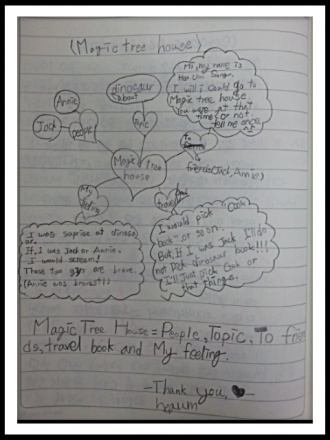 (Magic tree house)
dinosaur
about
Hi, my name is
I will could go to
Magic tree house
You were at that
time? or not
tell me once
Annie
Jack
people
Topic
To
friends(Jack, Annie)
Magic tree
house
My
feeling
travel
book
I was saprise at dinaso
or.
If, I was Jack or Annie,
I would scream!
Those two gyn are brave.
(Annie was bravest!!)
I would pick "Cook
book" or so on.
But, If I was Jack I'll do
not Pick dinosaur book!!!
I'll Just Pick Cook or
that things.
Magic Tree House = People, Topic, To frien
ds, travel book and My feeling.
-Thank you, ♥-